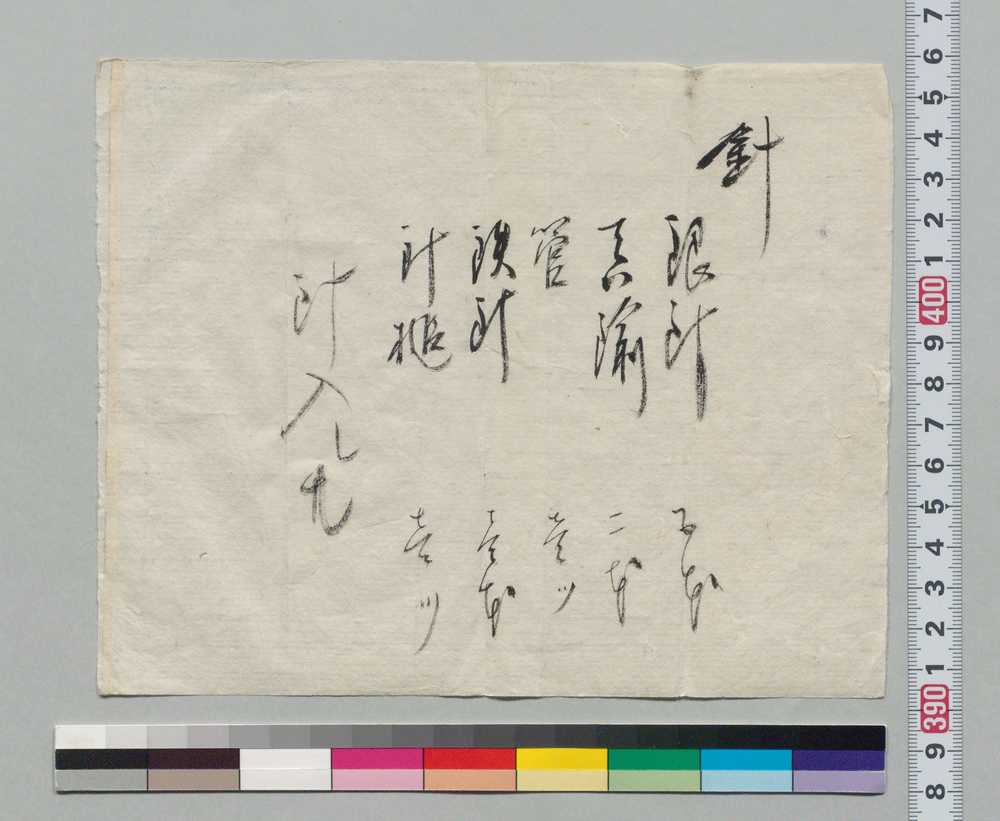 針
銀針 五本
真鍮 二本
管 壱ツ
鉄針 壱本
針槌 壱ツ
針入レ
7
6
5
4
3
2
1
400
9
8
7
6
5
4
3
2
1
390
9
8